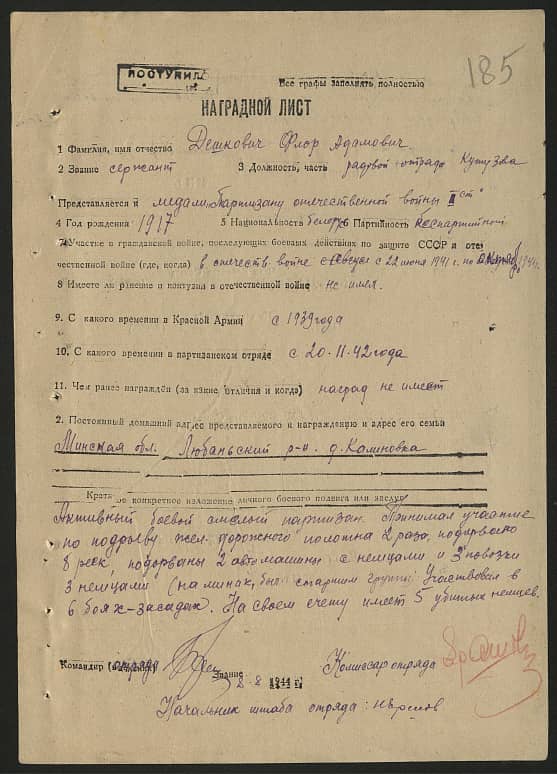 ПОСТУПИЛ
185
Все графы заполнять полностью
НАГРАДНОЙ ЛИСТ
1 Фамилия, имя отчество Дешкович Флор Адамович.
2 Звание сержант 3 Должность, часть рядовой отряда Кутузова
Представляется к медали "Партизану отечественной войны II ст"
4 Год рождения 1917 5 Национальность белорус 6 Партийность беспартийной
7 Участие в гражданской войне, последующих боевых действиях по защите СССР и отече
чественной войне (где, когда) в отечеств. войне с 22 июня 1941 г. по
8 Имеете ли ранение и контузия в отечественной войне не имел.
9. С какого времени в Красной Армии с 1939 года
10. С какого времени в партизанском отряде с 20.11.42 года
11. Чем ранее награждён (за какие отличия и когда) наград не имеет
2. Постоянный домашний адрес представляемого к награждению и адрес его семьи
Минская обл. Любаньский р-н. д. Калиновка
Кратк ое конкретное изложение личного боевого подвига или заслуг
Активный боевой смелый партизан. Принимал участие
по подрыву жел. дорожного полотна 2 раза, подорвано
8 рельс, подорваны 2 автомашины с немцами и 3 повозки
з немцами (на минах, был старшим группы. Участвовал в
6 боях-засадах. На своем счету имеет 5 убитых немцев.
Командир отряда Звание Комиссар отряда
8-8 1944 г.
Начальник штаба отряда: